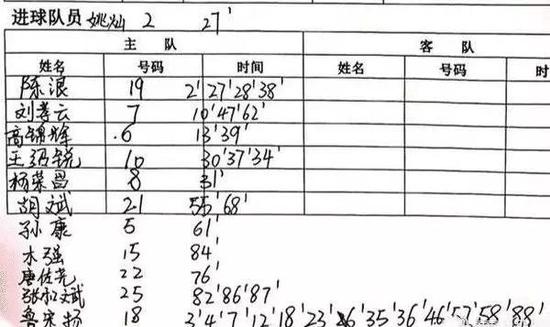 进球队员 姚灿 2 27'
主 队 客 队
姓名 号码 时间 姓名 号码 时
陈浪 19 2' 27' 28' 38'
刘孝云 7 10' 47' 62'
高锦辉 6 13' 39'
王 锐 10 30' 37' 34'
杨荣昌 8 31'
胡斌 21 55' 68'
孙康 5 61'
木强 15 84'
唐佐尧 22 76'
张 斌 25 82' 86' 87'
鲁宋扬 18 3' 4' 7' 12' 18' 23' 26' 35' 36' 46' 57' 58' 88'